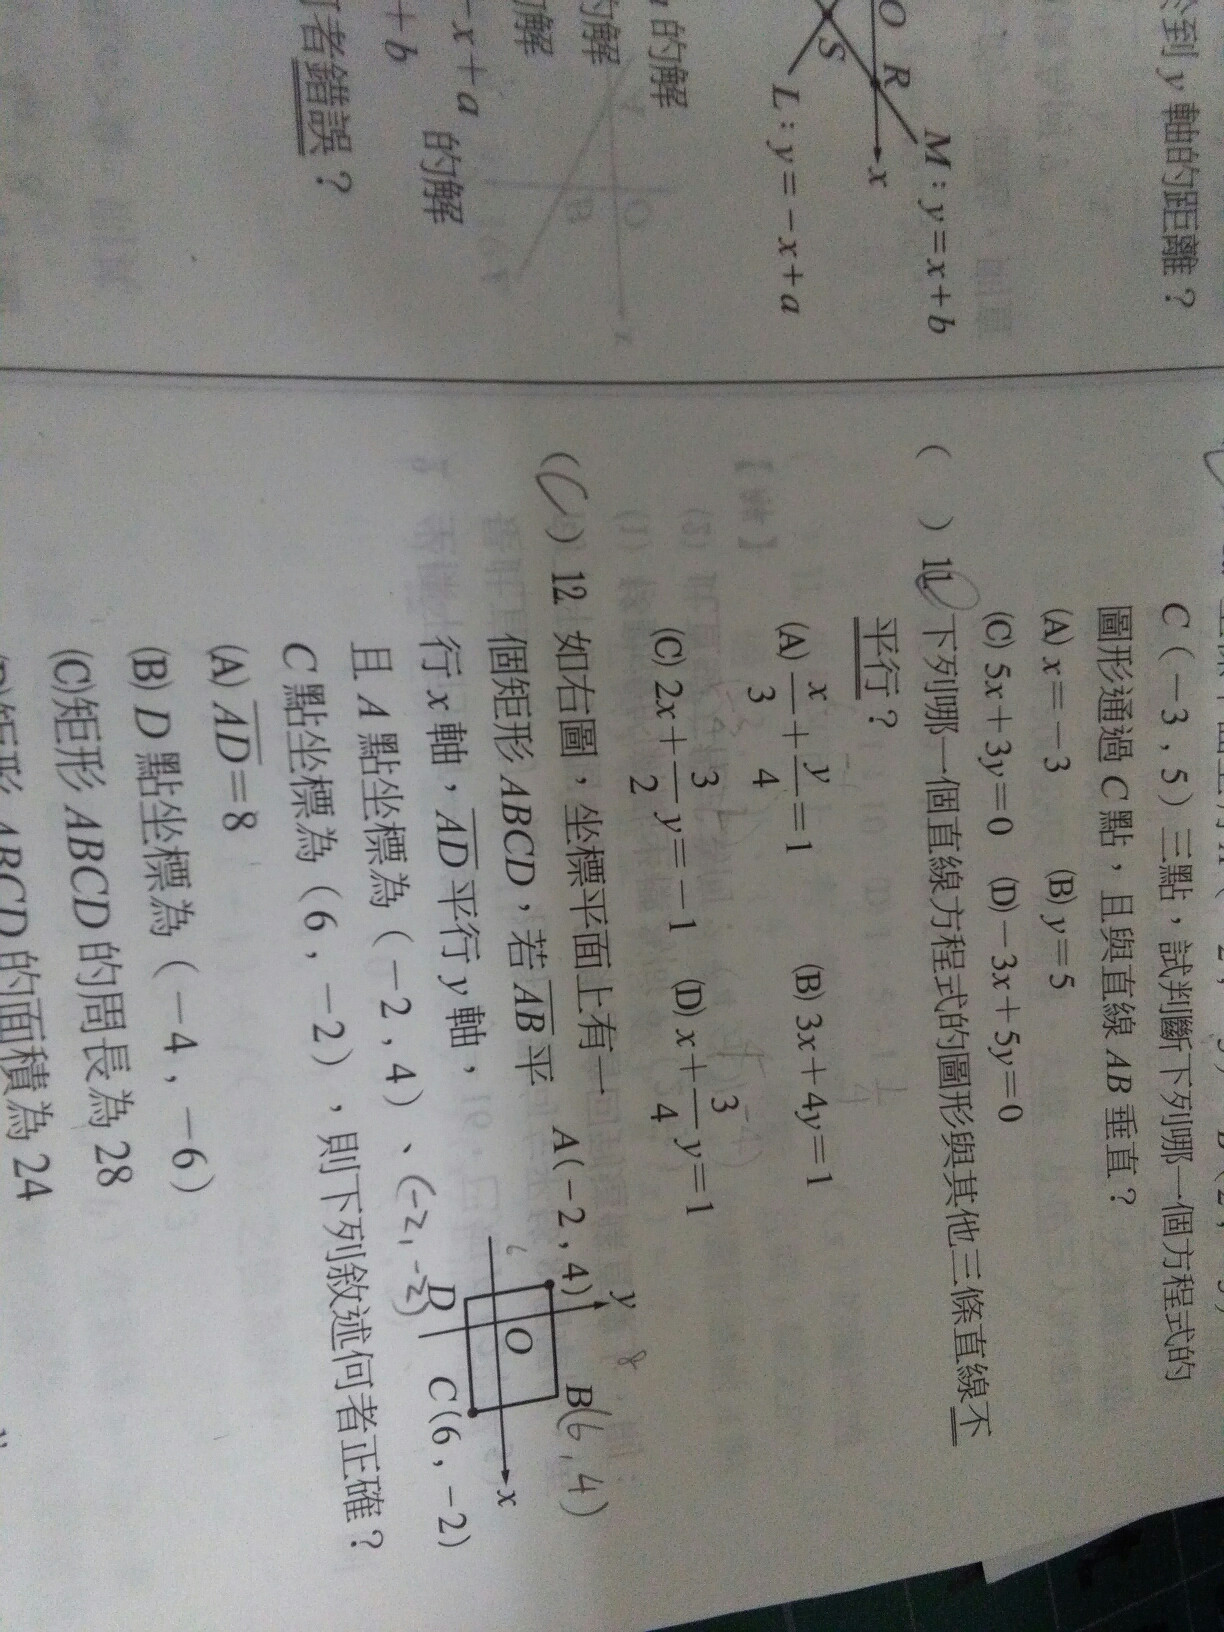 到 y 軸的距離？
O R x
M：y＝x＋b
S
L：y＝－x＋a
的解
的解
的解
－x＋a 的解
＋b
者錯誤？
C（－3，5）三點，試判斷下列哪一個方程式的
圖形通過 C 點，且與直線 AB 垂直？
(A) x＝－3 (B) y＝5
(C) 5x＋3y＝0 (D)－3x＋5y＝0
（ ）11. 下列哪一個直線方程式的圖形與其他三條直線不
平行？
(A) x/3＋y/4＝1 (B) 3x＋4y＝1
(C) 2x＋3/2 y＝－1 (D) x＋3/4 y＝1
（C）12. 如右圖，坐標平面上有一
個矩形 ABCD，若 AB 平
行 x 軸，AD 平行 y 軸，
且 A 點坐標為（－2，4）、
C 點坐標為（6，－2），則下列敘述何者正確？
A(－2，4) y 8 B(6,4)
6 O x
(-2,-2) D C(6，－2)
(A) AD＝8
(B) D 點坐標為（－4，－6）
(C)矩形 ABCD 的周長為 28
(D)矩形 ABCD 的面積為 24